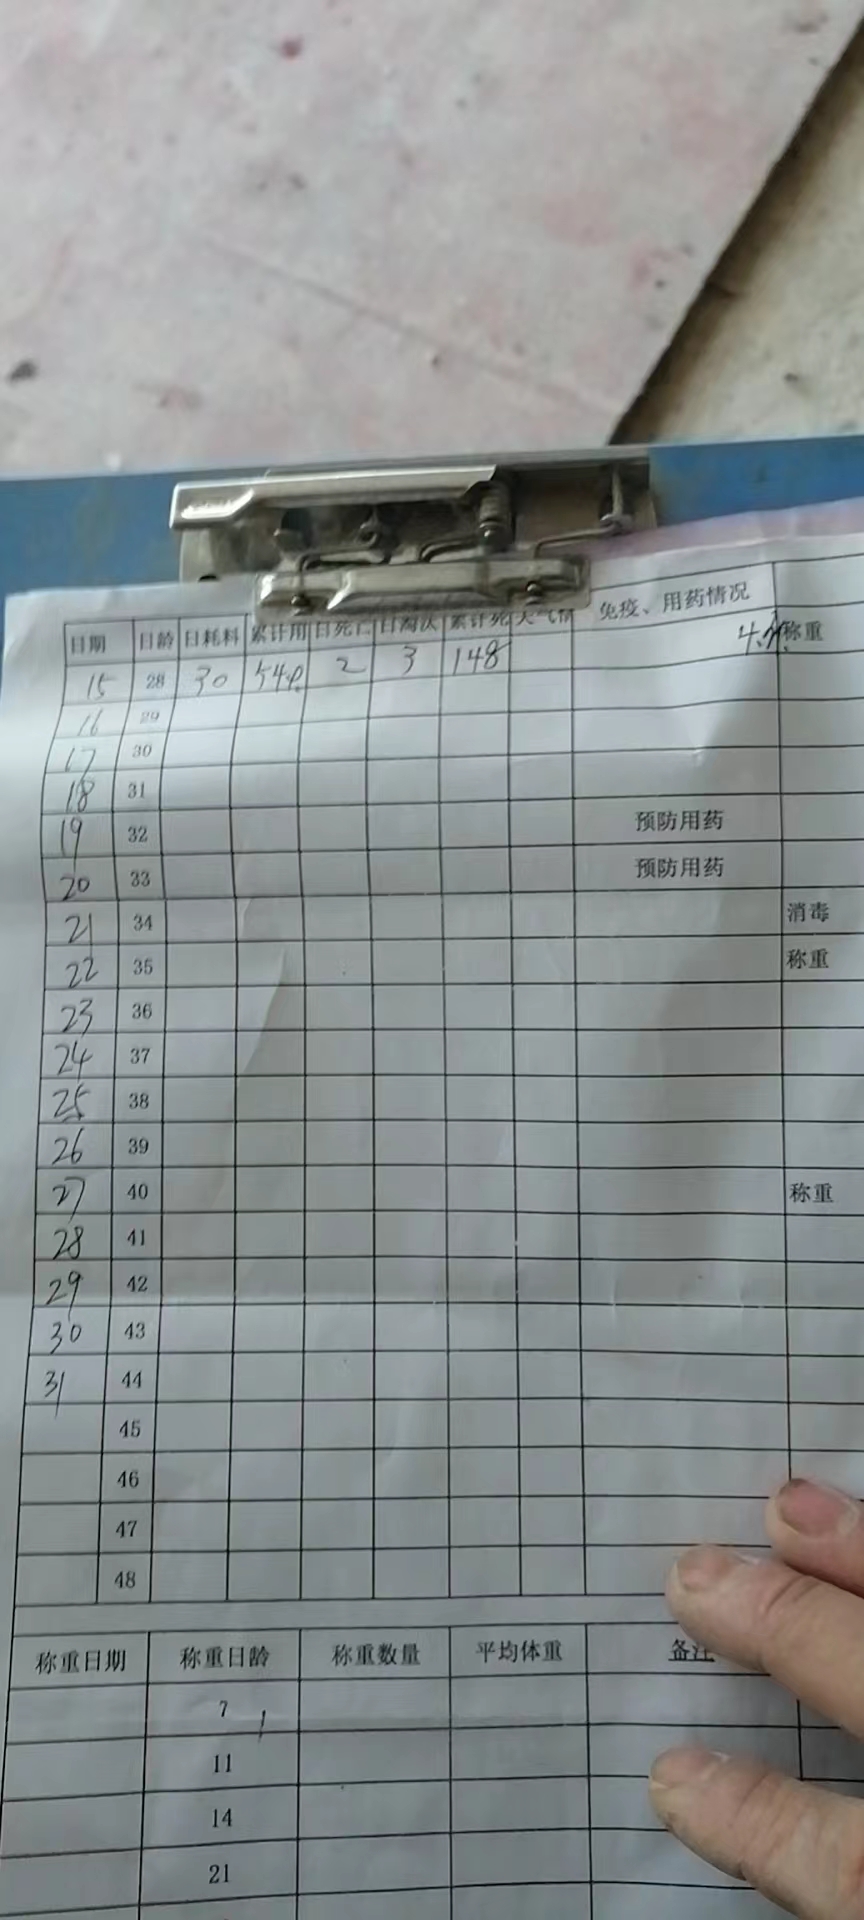 日期 日龄 日耗料 累计用 日死亡 日淘汰 累计死 天气情 免疫、用药情况
15 28 30 549 2 3 148 称重
16 29
17 30
18 31
19 32 预防用药
20 33 预防用药
21 34 消毒
22 35 称重
23 36
24 37
25 38
26 39
27 40 称重
28 41
29 42
30 43
31 44
45
46
47
48
称重日期 称重日龄 称重数量 平均体重 备注
7
11
14
21